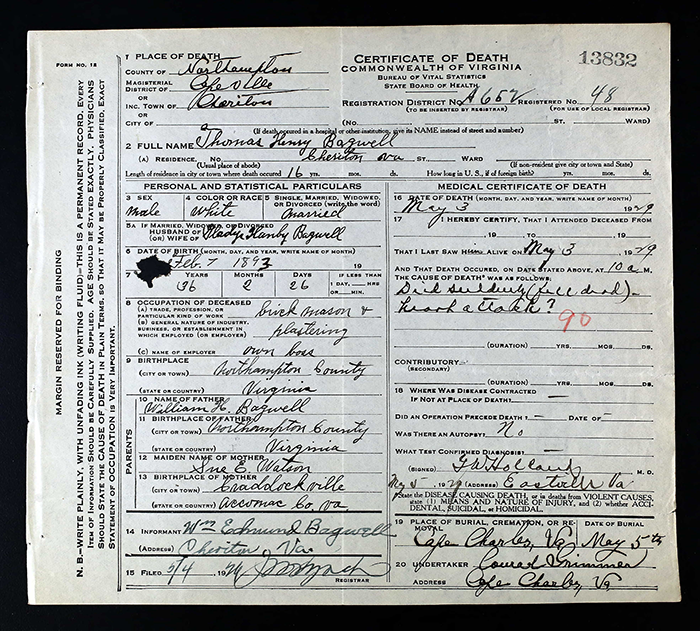 FORM NO. 12
MARGIN RESERVED FOR BINDING
N. B.—WRITE PLAINLY, WITH UNFADING INK (WRITING FLUID)—THIS IS A PERMANENT RECORD. EVERY
ITEM OF INFORMATION SHOULD BE CAREFULLY SUPPLIED. AGE SHOULD BE STATED EXACTLY. PHYSICIANS
SHOULD STATE THE CAUSE OF DEATH IN PLAIN TERMS, SO THAT IT MAY BE PROPERLY CLASSIFIED. EXACT
STATEMENT OF OCCUPATION IS VERY IMPORTANT.
1 PLACE OF DEATH
COUNTY OF Northampton
MAGISTERIAL
DISTRICT OF Capeville
OR
INC. TOWN OF Cheriton
OR
CITY OF
CERTIFICATE OF DEATH
COMMONWEALTH OF VIRGINIA
BUREAU OF VITAL STATISTICS
STATE BOARD OF HEALTH
13832
REGISTRATION DISTRICT NO. A 652 REGISTERED NO. 48
(TO BE INSERTED BY REGISTRAR) (FOR USE OF LOCAL REGISTRAR)
(No. ST. WARD)
(If death occurred in a hospital or other institution, give its NAME instead of street and number)
2 FULL NAME Thomas Henry Bagwell
(A) RESIDENCE. No. Cheriton Va ST. WARD
(Usual place of abode) (If non-resident give city or town and State)
Length of residence in city or town where death occurred 16 yrs. mos. ds. How long in U. S., if of foreign birth? yrs. mos. ds.
PERSONAL AND STATISTICAL PARTICULARS
3 SEX male
4 COLOR OR RACE White
5 SINGLE, MARRIED, WIDOWED, OR DIVORCED (write the word) married
5A IF MARRIED, WIDOWED, OR DIVORCED
HUSBAND OF
(OR) WIFE OF Bagwell
6 DATE OF BIRTH (MONTH, DAY, AND YEAR, WRITE NAME OF MONTH)
Feb. 7 1893 19
7 YRS. MOS. DAYS IF LESS THAN
36 2 26 1 DAY, HRS
OR MIN.
8 OCCUPATION OF DECEASED
(A) TRADE, PROFESSION, OR
PARTICULAR KIND OF WORK brick mason &
(B) GENERAL NATURE OF INDUSTRY,
BUSINESS, OR ESTABLISHMENT IN
WHICH EMPLOYED (OR EMPLOYER) plastering
(C) NAME OF EMPLOYER own boss
9 BIRTHPLACE
(CITY OR TOWN) Northampton County
(STATE OR COUNTRY) Virginia
PARENTS
10 NAME OF FATHER
William H. Bagwell
11 BIRTHPLACE OF FATHER
(CITY OR TOWN) Northampton County
(STATE OR COUNTRY) Virginia
12 MAIDEN NAME OF MOTHER
Sue E. Watson
13 BIRTHPLACE OF MOTHER
(CITY OR TOWN) Craddockville
(STATE OR COUNTRY) Accomac Co. Va
14 INFORMANT Wm Edmund Bagwell
(ADDRESS) Cheriton Va
15 FILED 5/4 19 29
REGISTRAR
MEDICAL CERTIFICATE OF DEATH
16 DATE OF DEATH (MONTH, DAY, AND YEAR, WRITE NAME OF MONTH)
May 3 1929
17 I HEREBY CERTIFY, THAT I ATTENDED DECEASED FROM
, 19 , TO , 19
THAT I LAST SAW HIM ALIVE ON May 3 1929
AND THAT DEATH OCCURED, ON DATE STATED ABOVE, AT 10 a M.
THE CAUSE OF DEATH* WAS AS FOLLOWS:
Died suddenly (fell dead)—
heart attack?
90
(DURATION) YRS. MOS. DS.
CONTRIBUTORY
(SECONDARY)
(DURATION) YRS. MOS. DS.
18 WHERE WAS DISEASE CONTRACTED
IF NOT AT PLACE OF DEATH? —
DID AN OPERATION PRECEDE DEATH? — DATE OF
WAS THERE AN AUTOPSY? No
WHAT TEST CONFIRMED DIAGNOSIS? —
(SIGNED) Holland M. D.
May 5 1929 Eastville Va
*State the DISEASE CAUSING DEATH, or in deaths from VIOLENT CAUSES,
state (1) MEANS AND NATURE OF INJURY, and (2) whether ACCI-
DENTAL, SUICIDAL, or HOMICIDAL.
19 PLACE OF BURIAL, CREMATION, OR RE- DATE OF BURIAL
MOVAL
Cape Charles, Va May 5th
20 UNDERTAKER Conrad Grimmer
ADDRESS Cape Charles, Va